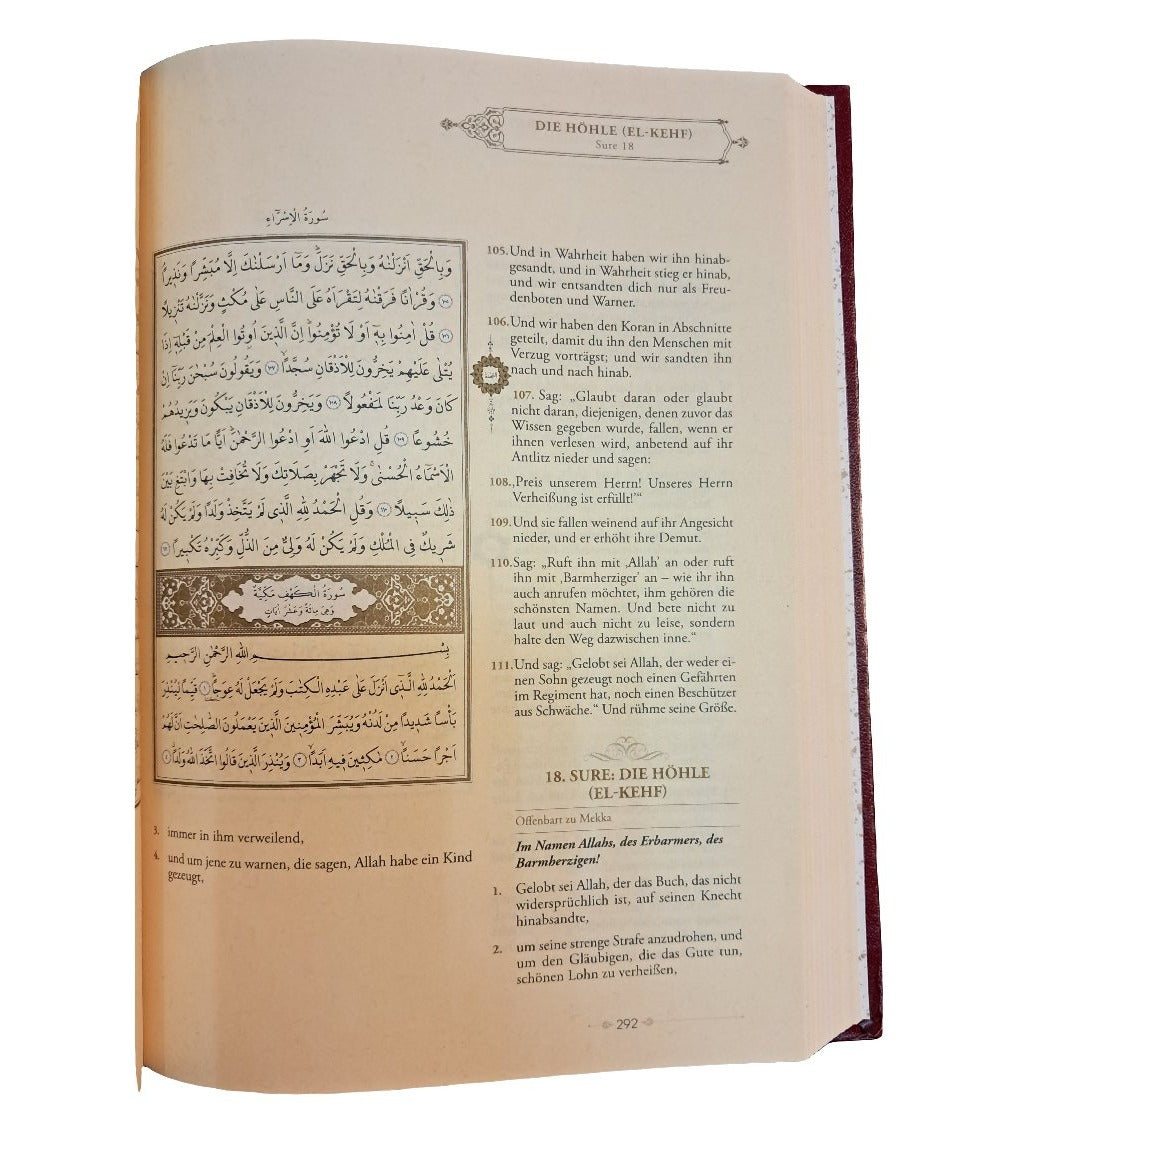 DIE HÖHLE (EL-KEHF)
Sure 18
سُورَةُ الْاِسْرَٓاءِ
وَبِالْحَقِّ اَنْزَلْنَاهُ وَبِالْحَقِّ نَزَلَۜ وَمَٓا اَرْسَلْنَاكَ اِلَّا مُبَشِّرًا وَنَذ۪يرًا
﴿١٠٥﴾ وَقُرْاٰنًا فَرَقْنَاهُ لِتَقْرَاَهُ عَلَى النَّاسِ عَلٰى مُكْثٍ وَنَزَّلْنَاهُ تَنْز۪يلًا
﴿١٠٦﴾ قُلْ اٰمِنُوا بِه۪ٓ اَوْ لَا تُؤْمِنُواۜ اِنَّ الَّذ۪ينَ اُو۫تُوا الْعِلْمَ مِنْ قَبْلِه۪ٓ اِذَا
يُتْلٰى عَلَيْهِمْ يَخِرُّونَ لِلْاَذْقَانِ سُجَّدًاۙ ﴿١٠٧﴾ وَيَقُولُونَ سُبْحَانَ رَبِّنَٓا اِنْ
كَانَ وَعْدُ رَبِّنَا لَمَفْعُولًا ﴿١٠٨﴾ وَيَخِرُّونَ لِلْاَذْقَانِ يَبْكُونَ وَيَز۪يدُهُمْ
خُشُوعًا ﴿١٠٩﴾ قُلِ ادْعُوا اللّٰهَ اَوِ ادْعُوا الرَّحْمٰنَۜ اَيًّا مَا تَدْعُوا فَلَهُ
الْاَسْمَٓاءُ الْحُسْنٰىۚ وَلَا تَجْهَرْ بِصَلَاتِكَ وَلَا تُخَافِتْ بِهَا وَابْتَغِ بَيْنَ
ذٰلِكَ سَب۪يلًا ﴿١١٠﴾ وَقُلِ الْحَمْدُ لِلّٰهِ الَّذ۪ي لَمْ يَتَّخِذْ وَلَدًا وَلَمْ يَكُنْ لَهُ
شَر۪يكٌ فِي الْمُلْكِ وَلَمْ يَكُنْ لَهُ وَلِيٌّ مِنَ الذُّلِّ وَكَبِّرْهُ تَكْب۪يرًا ﴿١١١﴾
سُورَةُ الْكَهْفِ مَكِّيَّةٌ
وَهِيَ مِائَةٌ وَعَشَرَ اٰيَاتٍ
بِسْمِ اللّٰهِ الرَّحْمٰنِ الرَّح۪يمِ
اَلْحَمْدُ لِلّٰهِ الَّذ۪ٓي اَنْزَلَ عَلٰى عَبْدِهِ الْكِتَابَ وَلَمْ يَجْعَلْ لَهُ عِوَجًاۜ ﴿١﴾ قَيِّمًا لِيُنْذِرَ
بَأْسًا شَد۪يدًا مِنْ لَدُنْهُ وَيُبَشِّرَ الْمُؤْمِن۪ينَ الَّذ۪ينَ يَعْمَلُونَ الصَّالِحَاتِ اَنَّ لَهُمْ
اَجْرًا حَسَنًاۙ ﴿٢﴾ مَاكِث۪ينَ ف۪يهِ اَبَدًاۙ ﴿٣﴾ وَيُنْذِرَ الَّذ۪ينَ قَالُوا اتَّخَذَ اللّٰهُ وَلَدًاۗ ﴿٤﴾
105. Und in Wahrheit haben wir ihn hinab-
gesandt, und in Wahrheit stieg er hinab,
und wir entsandten dich nur als Freu-
denboten und Warner.
106. Und wir haben den Koran in Abschnitte
geteilt, damit du ihn den Menschen mit
Verzug vorträgst; und wir sandten ihn
nach und nach hinab.
107. Sag: „Glaubt daran oder glaubt
nicht daran, diejenigen, denen zuvor das
Wissen gegeben wurde, fallen, wenn er
ihnen verlesen wird, anbetend auf ihr
Antlitz nieder und sagen:
108. ‚Preis unserem Herrn! Unseres Herrn
Verheißung ist erfüllt!‘“
109. Und sie fallen weinend auf ihr Angesicht
nieder, und er erhöht ihre Demut.
110. Sag: „Ruft ihn mit ‚Allah‘ an oder ruft
ihn mit ‚Barmherziger‘ an – wie ihr ihn
auch anrufen möchtet, ihm gehören die
schönsten Namen. Und bete nicht zu
laut und auch nicht zu leise, sondern
halte den Weg dazwischen inne.“
111. Und sag: „Gelobt sei Allah, der weder ei-
nen Sohn gezeugt noch einen Gefährten
im Regiment hat, noch einen Beschützer
aus Schwäche.“ Und rühme seine Größe.
18. SURE: DIE HÖHLE
(EL-KEHF)
Offenbart zu Mekka
Im Namen Allahs, des Erbarmers, des
Barmherzigen!
1. Gelobt sei Allah, der das Buch, das nicht
widersprüchlich ist, auf seinen Knecht
hinabsandte,
2. um seine strenge Strafe anzudrohen, und
um den Gläubigen, die das Gute tun,
schönen Lohn zu verheißen,
3. immer in ihm verweilend,
4. und um jene zu warnen, die sagen, Allah habe ein Kind
gezeugt,
292